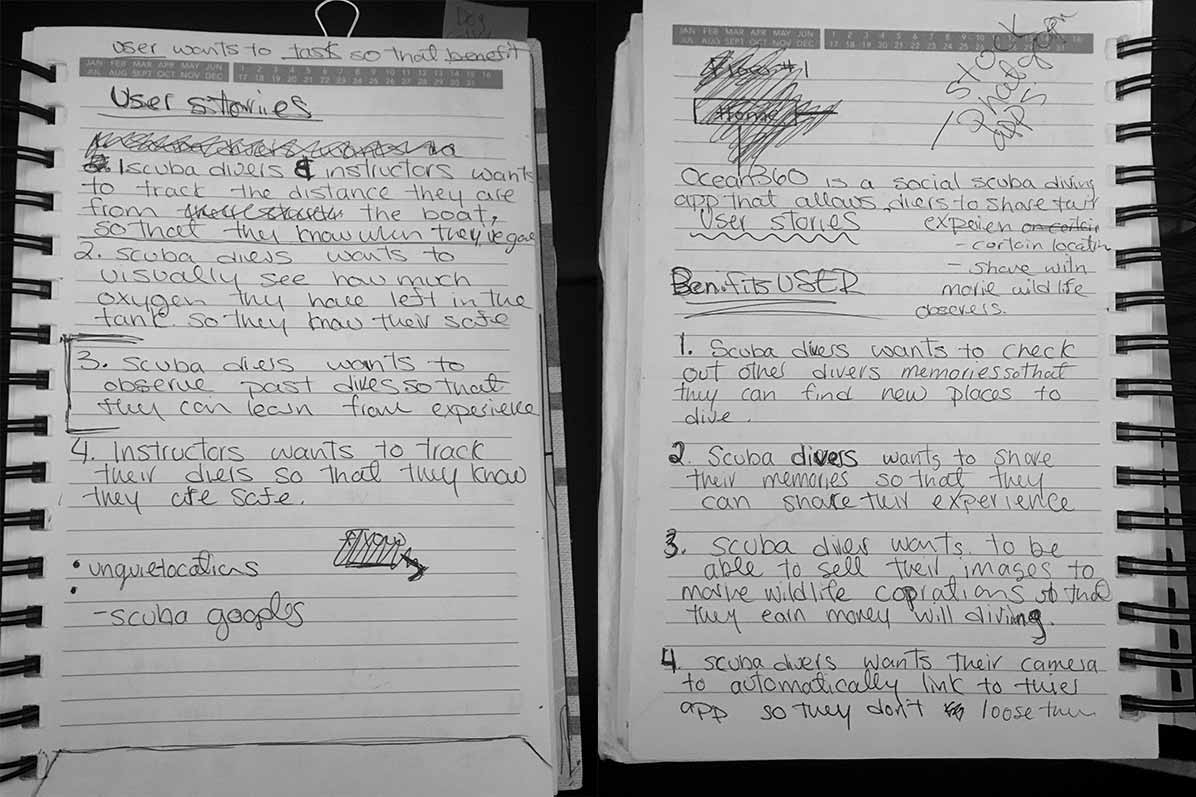 user wants to task so that benefit
JAN FEB MAR APR MAY JUN 1 2 3 4 5 6 7 8 9 10 11 12 13 14 15 16
JUL AUG SEPT OCT NOV DEC 17 18 19 20 21 22 23 24 25 26 27 28 29 30 31
User stories
1 scuba divers & instructors wants
to track the distance they are
from the boat,
so that they know when they've gone
2. scuba divers wants to
visually see how much
oxygen they have left in the
tank. so they know their safe
3. scuba divers wants to
observe past dives so that
they can learn from experience
4. Instructors wants to track
their divers so that they know
they are safe.
• unquie locations
•
- scuba googles
JAN FEB MAR APR MAY JUN 1 2 3 4 5 6 7 8 9 10
JUL AUG SEPT OCT NOV DEC 17 18 19 20 21 22 23 24 25 26 31
#1
Home
STOCK
apps
Ocean360 is a social scuba diving
app that allows divers to share their
User stories experien
- certain location
- share with
marie wildlife
observers.
Benifits USER
1. Scuba divers wants to check
out other divers memories so that
they can find new places to
dive.
2. Scuba divers wants to share
their memories so that they
can share their experience
3. scuba diver wants to be
able to sell their images to
marie wildlife coprations so that
they earn money will diviing.
4. scuba divers wants their camera
to automatically link to thies
app so they don't loose them